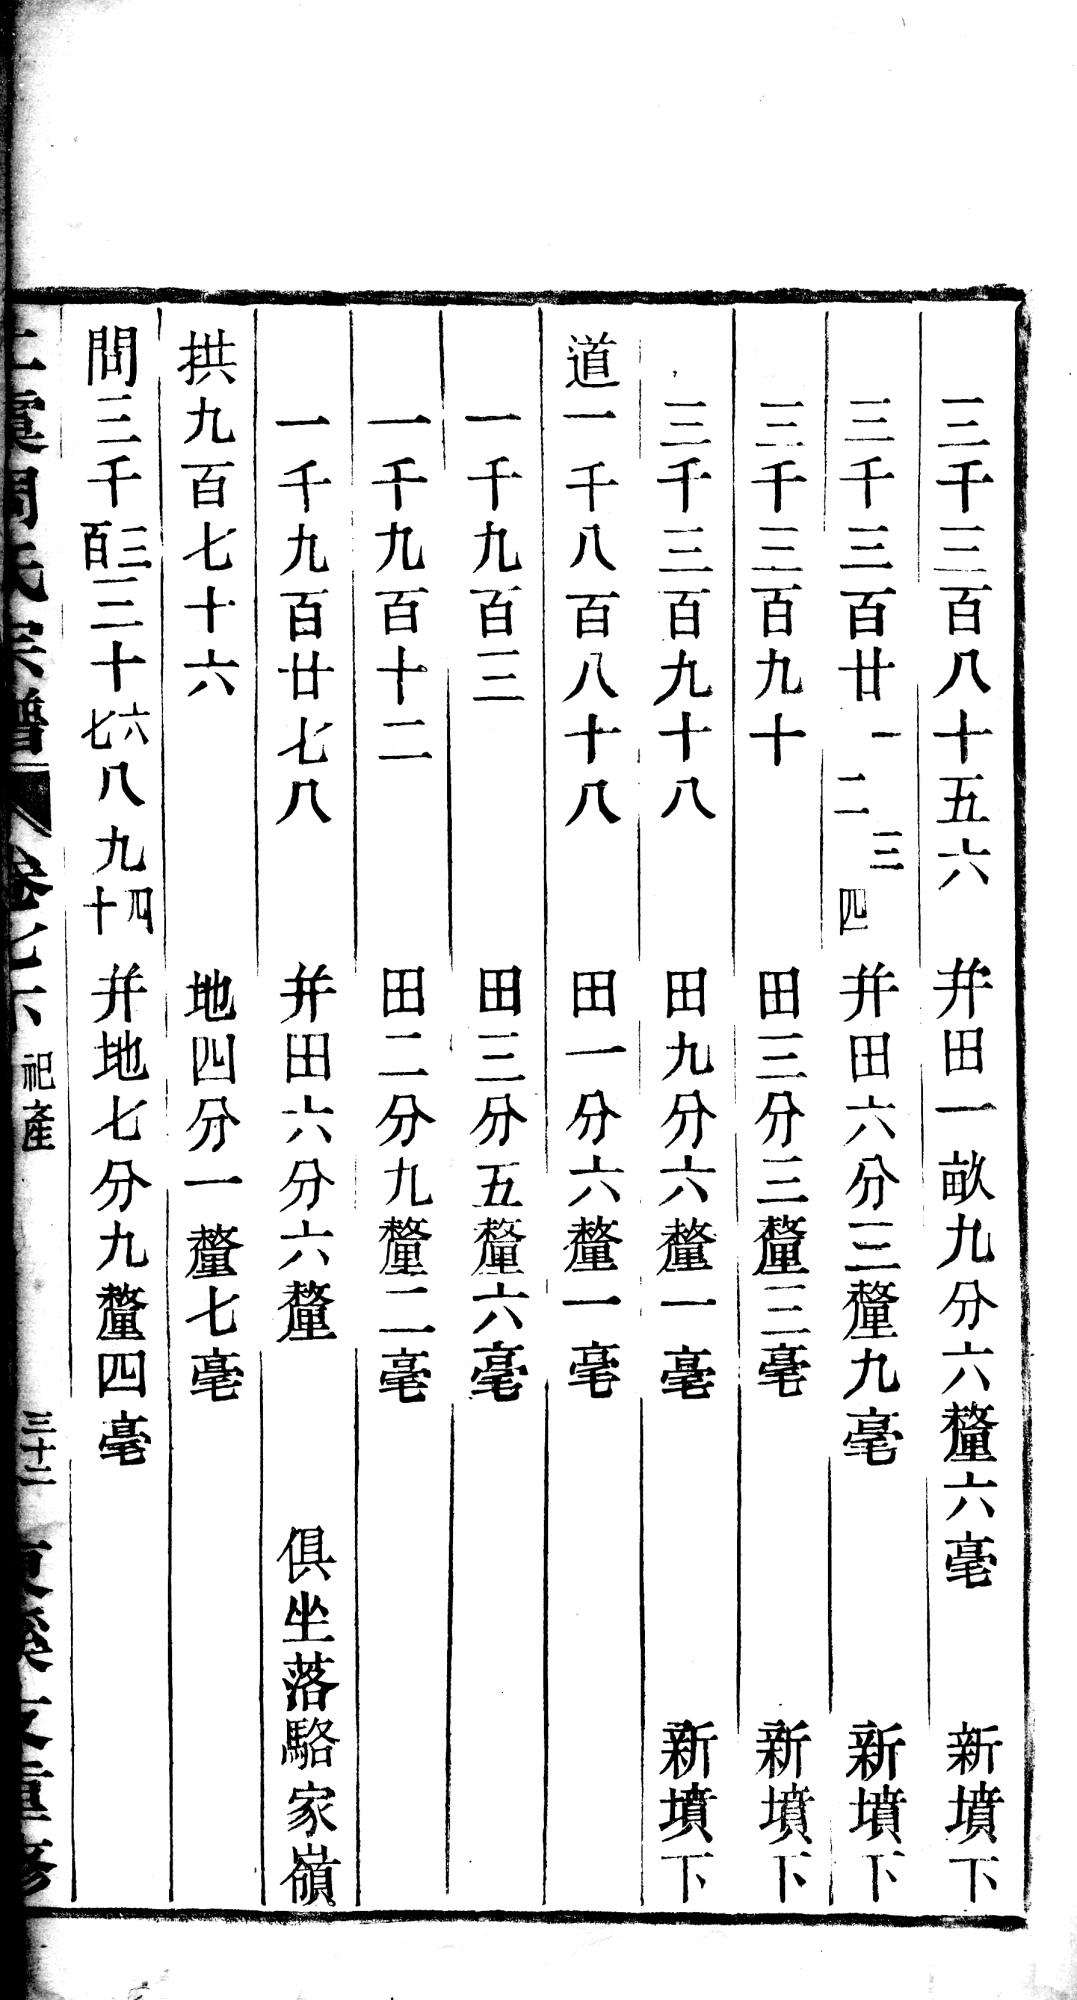 三千三百八十五六　幷田一畝九分六釐六毫　新墳下
三千三百廿一二三四　幷田六分三釐九毫　新墳下
三千三百九十　田三分三釐三毫　新墳下
三千三百九十八　田九分六釐一毫　新墳下
道一千八百八十八　田一分六釐一毫
一千九百三　田三分五釐六毫
一千九百十二　田二分九釐二毫
一千九百廿七八　幷田六分六釐　俱坐落駱家嶺
拱九百七十六　地四分一釐七毫
問三千三百三十六七八九四十　幷地七分九釐四毫
上虞周氏宗譜　卷七六　祀產　三十二　東溪支重修